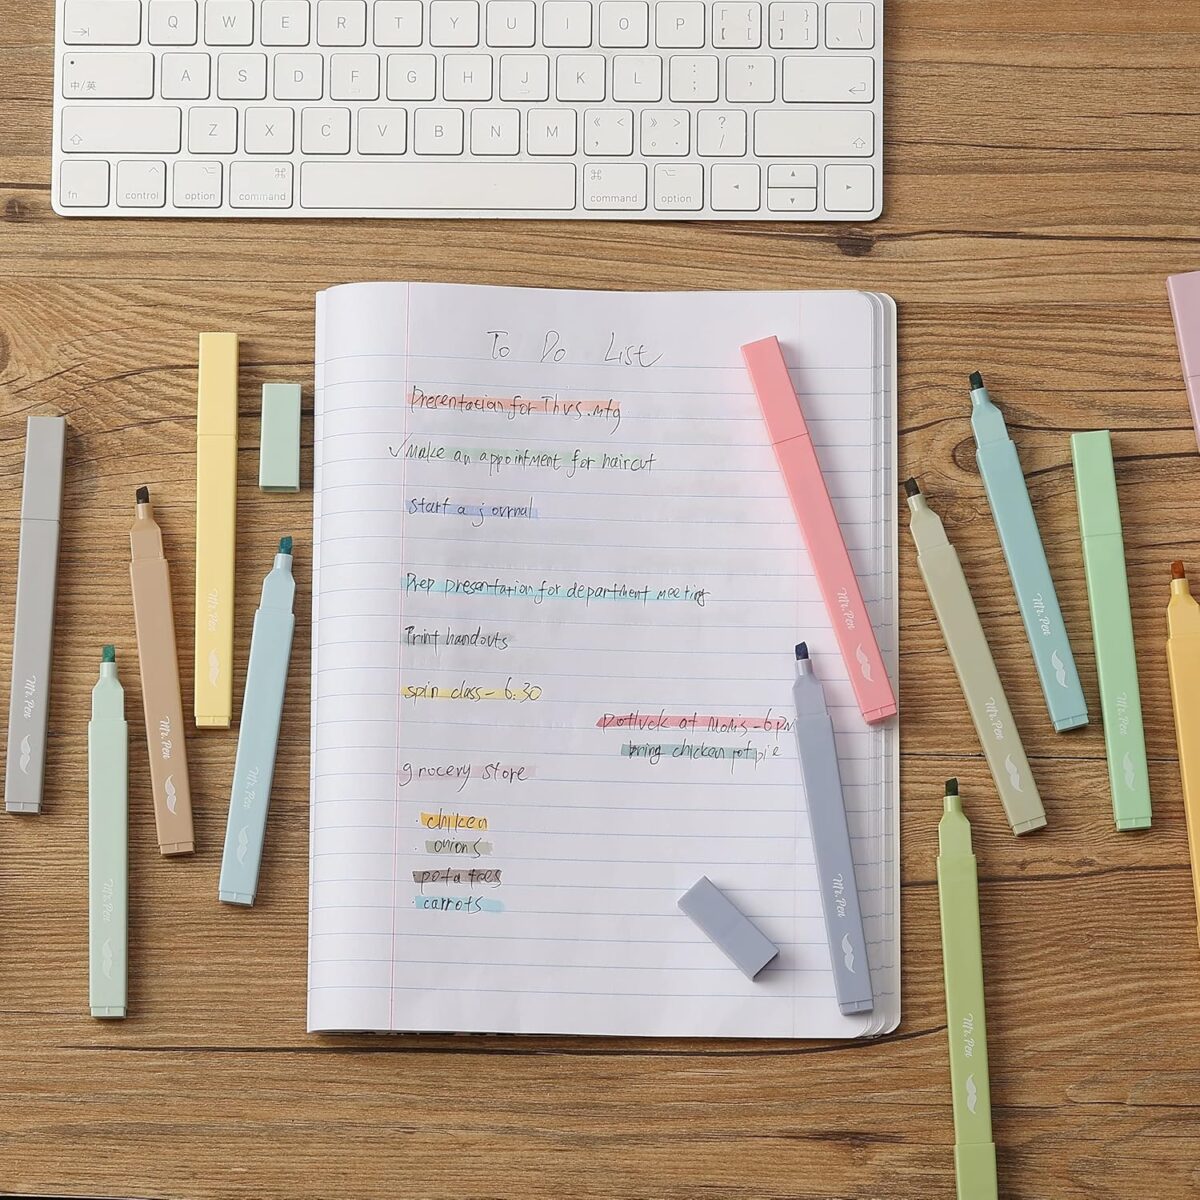 Q W E R T Y U I O P { [ 【 } ] 】 | \ 、
中/英 A S D F G H J K L : ; " '
Z X C V B N M 《 < , 》 > 。 . ? /
fn control option command command option
To Do List
Presentation for Thvs. mtg
✓ Make an appointment for haircut
Start a journal
Prep presentation for department meeting
Print handouts
spin class - 6:30
Potluck at Moms - 6pm
bring chicken pot pie
grocery store
· chicken
· onions
· potatoes
· carrots
Mr. Pen
Mr. Pen
Mr. Pen
Mr. Pen
Mr. Pen
Mr. Pen
Mr. Pen
Mr. Pen
Mr. Pen
Mr. Pen
Mr. Pen